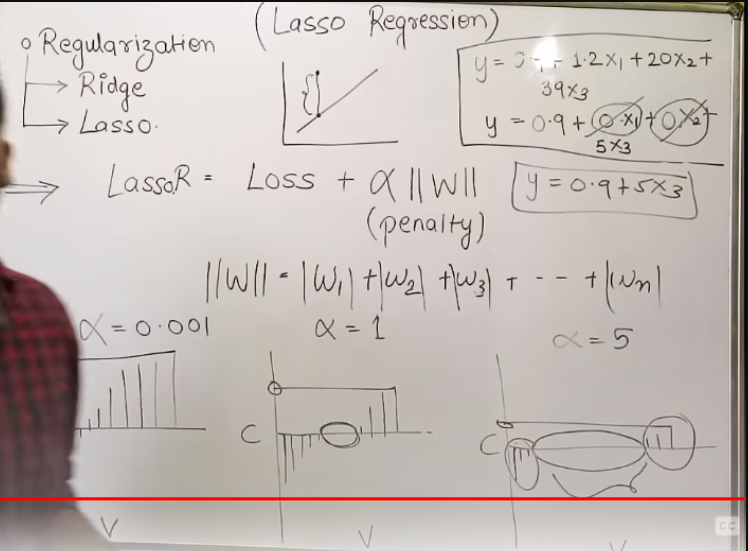 (Lasso Regression)
o Regularization
→ Ridge
→ Lasso.
1.2x₁ + 20x₂ +
39x₃
y = 0.9 + 0.x₁ + 0x₂ +
5x₃
⇒ LassoR = Loss + α ||W||
(penalty)
y = 0.9+5x₃
||W|| = |W₁| + |W₂| + |W₃| + -- + |Wn|
α = 0.001
α = 1
α = 5
C
C
V
V
CC